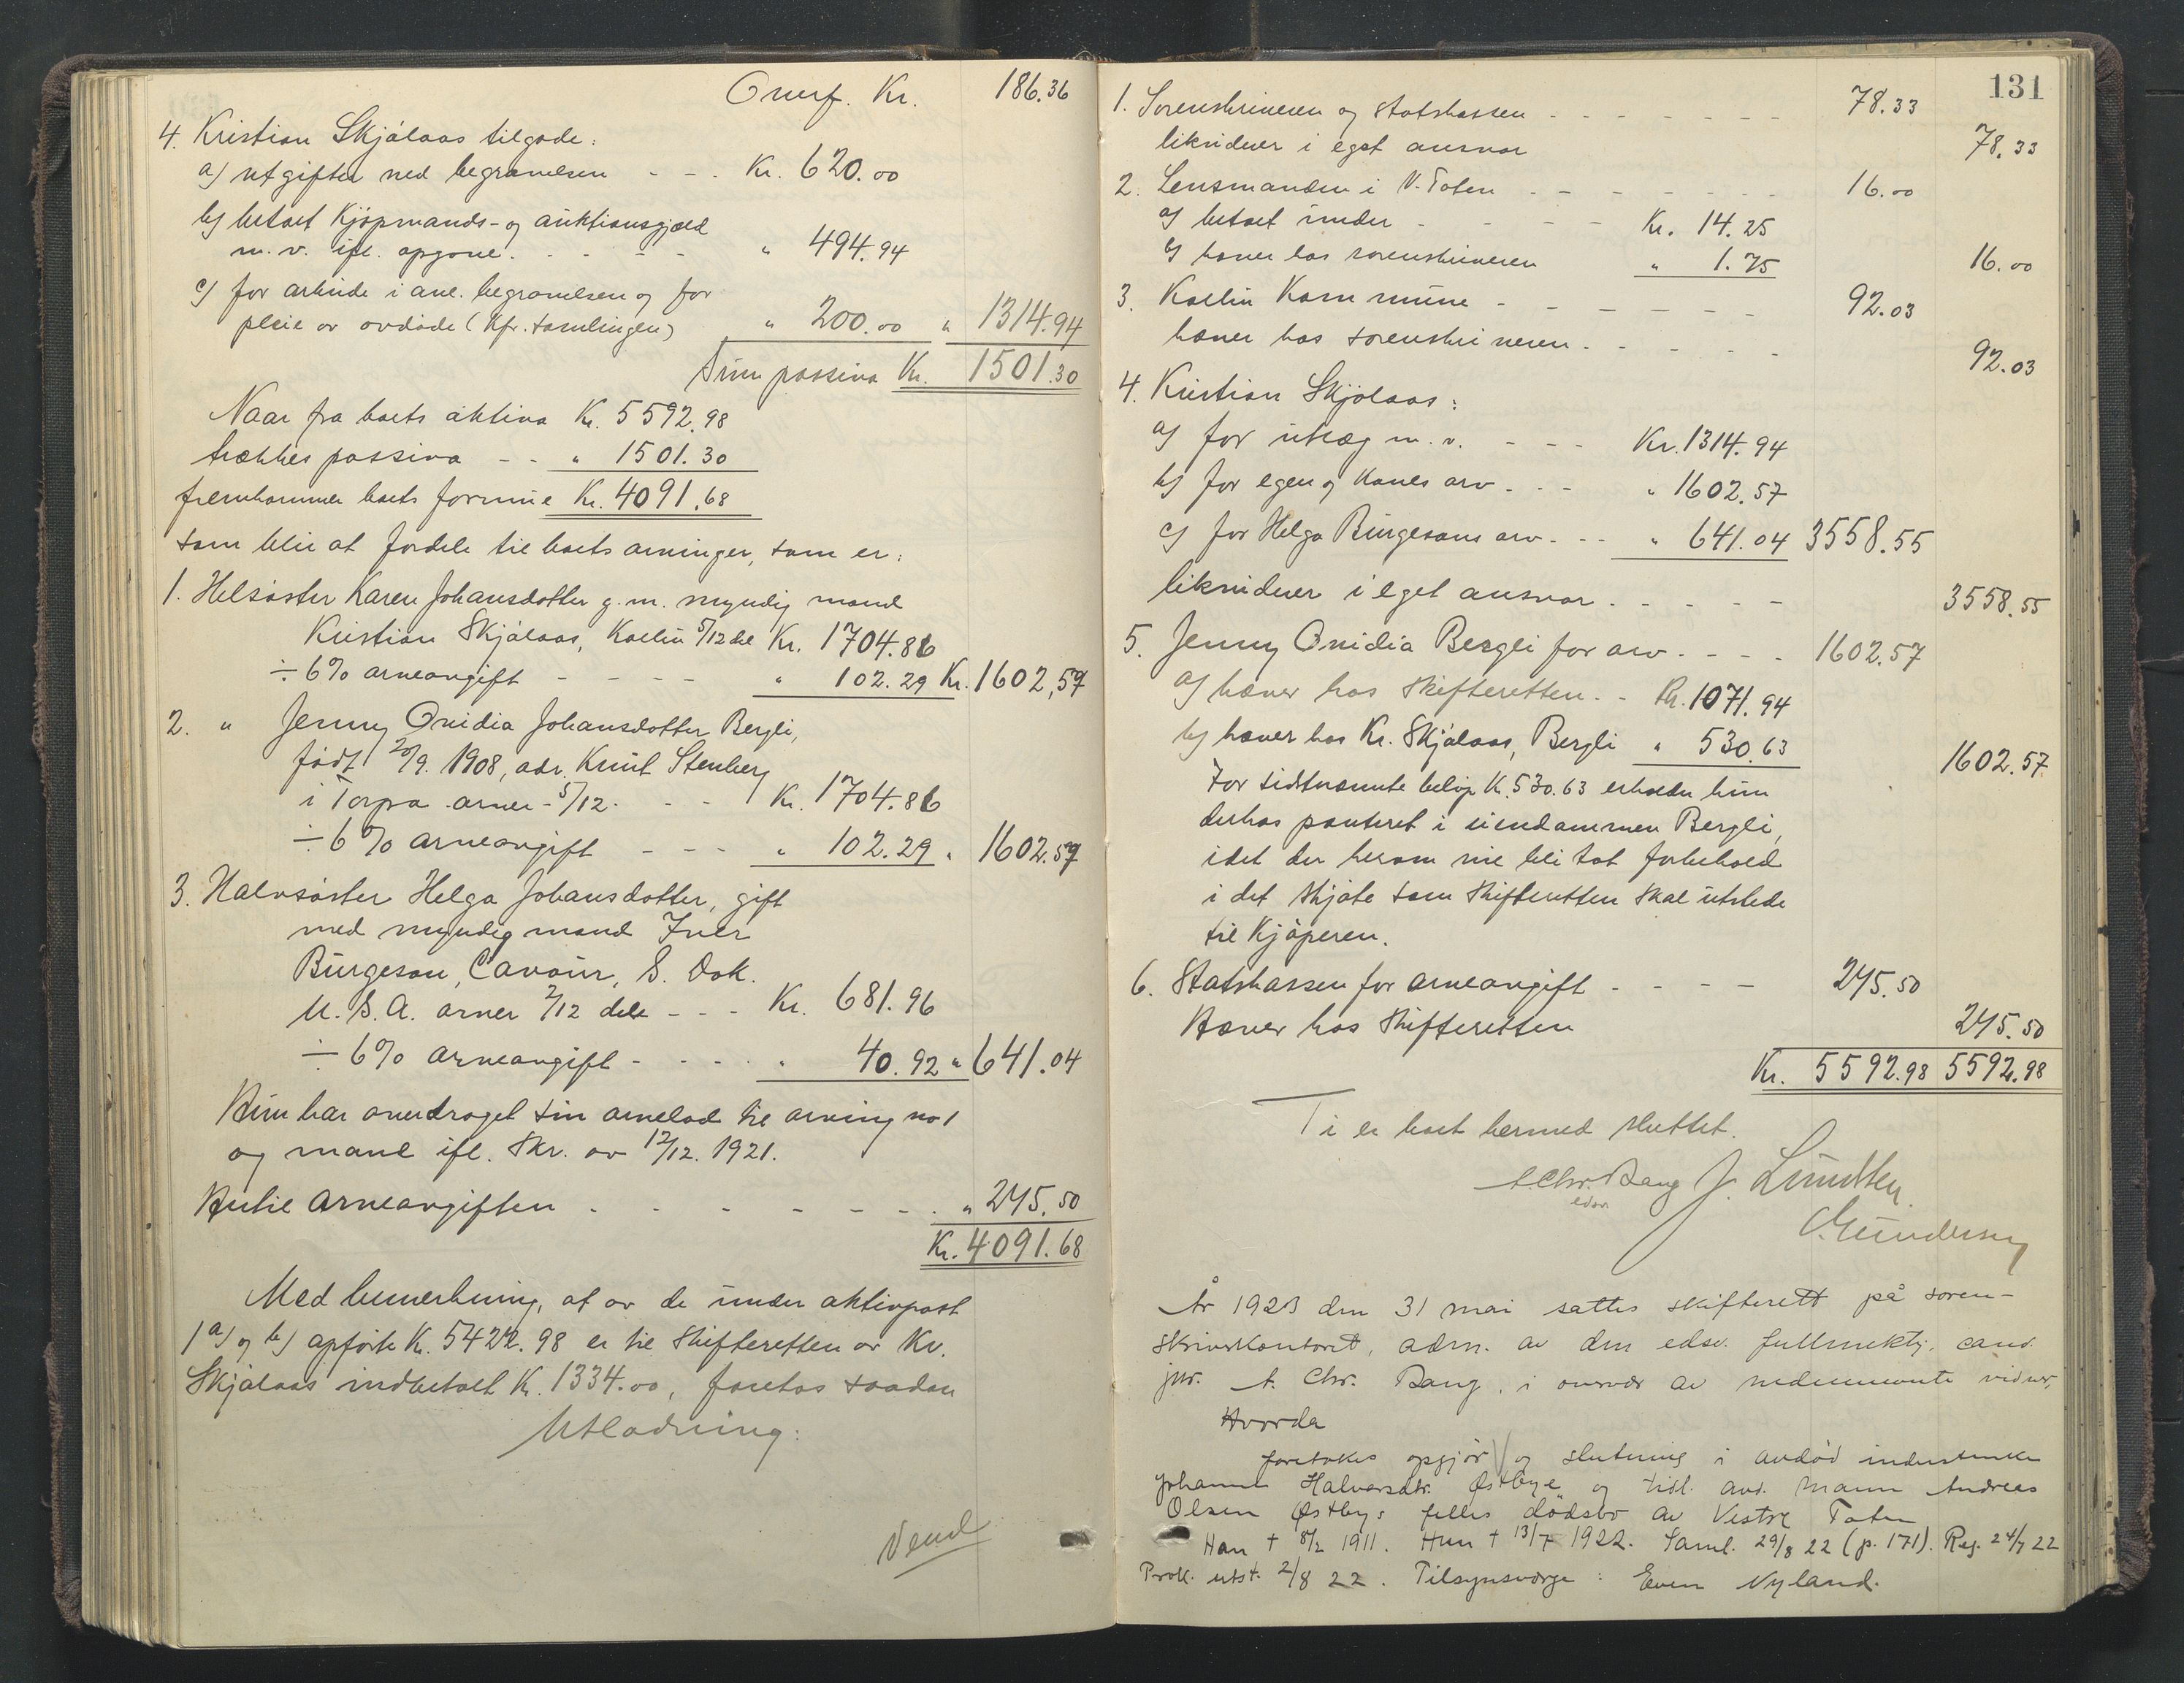 Overf. Kr. 186.36
4. Kristian Skjølaas tilgode:
a) utgifter ved begravelsen - - . Kr. 620.00
b) betalt Kjøpmands- og auktionsgjæld
m. v. ifl. opgave. - - - - " 494.94
c) for arbeide i anl. begravelsen og for
pleie av avdøde (Kfr. samlingen) " 200.00 " 1314.94
Sum passiva Kr. 1501.30
Naar fra boets aktiva Kr. 5592.98
trækkes passiva - - " 1501.30
fremkommer boets formue Kr. 4091.68
som blir at fordele til boets arvinger, som er:
1. Helsøster Karen Johansdotter g. m. myndig mand
Kristian Skjølaas, Kolbu 5/12 del Kr. 1704.86
÷ 6% arveavgift - - - - " 102.29 Kr. 1602,57
2. " Jenny Ovidia Johansdotter Bergli,
født 20/9. 1908, adr. Knut Stenberg
i Torpa arver - 5/12. - - Kr. 1704.86
÷ 6% arveavgift - - - " 102.29 " 1602.57
3. Halvsøster Helga Johansdotter, gift
med myndig mand Iver
Burgeson, Cavour, S. Dak.
U. S. A. arver 2/12 dele - - - Kr. 681.96
÷ 6% arveavgift - - - - " 40.92 " 641.04
Hun har overdraget sin arvelod til arving no 1
og mand ifl. Skr. av 12/12. 1921.
Hertil arveavgiften - - - - - - - " 245.50
Kr. 4091.68
Med bemerkning, at av de under aktivpost
1 a) og b) opførte Kr. 5422.98 er til Skifteretten av Kr.
Skjølaas indbetalt Kr. 1334.00, foretas saadan
Utlodning:
Vend
131
1. Sorenskriveren og Statskassen - - - - - - - 78.33
likviderer i eget ansvar 78.33
2. Lensmanden i V. Toten - - - - - - - 16.00
a) betalt under - - - - Kr. 14.25
b) hæver hos sorenskriveren " 1.75 16.00
3. Kolbu Kommune - - - - - - 92.03
hæver hos sorenskriveren - - - - - 92.03
4. Kristian Skjølaas:
a) for utlæg m. v. - - - Kr. 1314.94
b) for egen og Kones arv - - - " 1602.57
c) for Helga Burgesons arv - - - " 641.04 3558.55
likviderer i eget ansvar - - - - - 3558.55
5. Jenny Ovidia Bergli for arv - - - - 1602.57
a) hæver hos Skifteretten - - Kr. 1071.94
b) hæver hos Kr. Skjølaas, Bergli " 530.63 1602.57
For sidstnævnte beløp Kr. 530.63 erholder hun
derhos panteret i eiendommen Bergli,
idet der herom vil bli tat forbehold
i det skjøte som Skifteretten skal utstede
til Kjøperen.
6. Statskassen for arveavgift - - - - 245.50
Hæver hos Skifteretten 245.50
Kr. 5592.98 5592.98
Ti er boet hermed sluttet.
A. Chr. Bang J. Lundsten
edsv.
O. Gundersen
År 1923 den 31 mai sattes skifterett på soren-
skriverkontoret, adm. av den edsv. fullmektig, cand.
jur. A. Chr. Bang, i overvær av nedennevnte vidner,
Hvorda
foretokes opgjør og slutning i avdød inderstenke
Johanne Halvorsdtr. Østbye og tidl. avd. mann Andreas
Olsen Østbys felles dødsbo av Vestre Toten
Han † 8/2 1911. Hun † 13/7 1922. Saml. 29/8 22 (p. 171). Reg. 24/7 22
Prok. utst. 2/8 22. Tilsynsverge: Even Nyland.